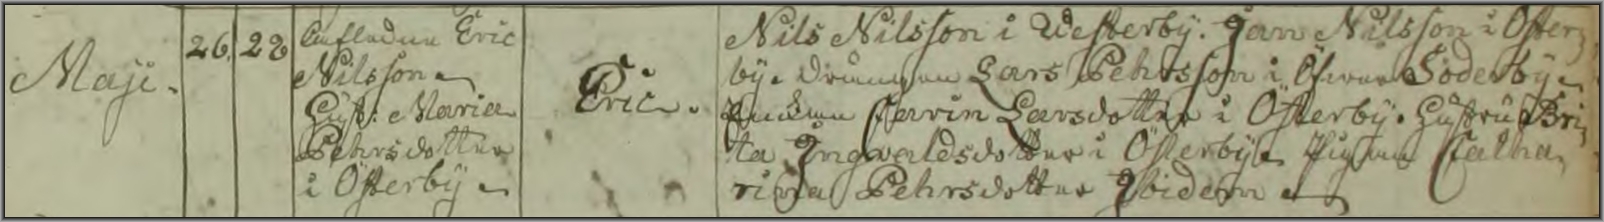 Maji. 26. 28
Aufladne Eric
Nilsson
Hust: Maria
Pehrsdotter
i Österby
Eric.
Nils Nilsson i Westerby. Jan Nilsson i Öster
by. Drängen Lars Pehrsson i Öfwer Söderby
Enkan Carin Larsdotter i Österby. Hustru Bri
ta Ingvaldsdotter i Österby Pigan Catha
rina Pehrsdotter Ibidem